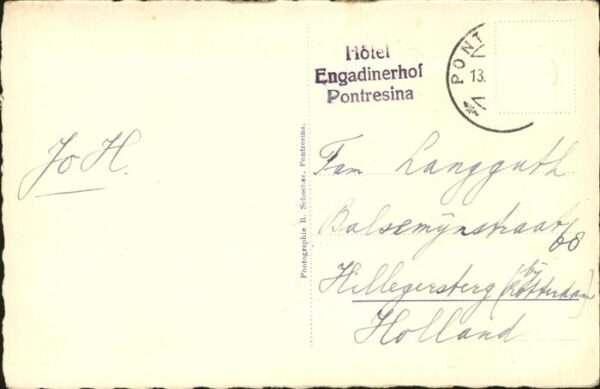 Jo H.
Hôtel
Engadinerhof
Pontresina
PONT
13.
Photographie B. Schocher, Pontresina.
Fam Langguth
Balsemijnstraat
68
Hillegersberg (bij Rotterdam)
Holland